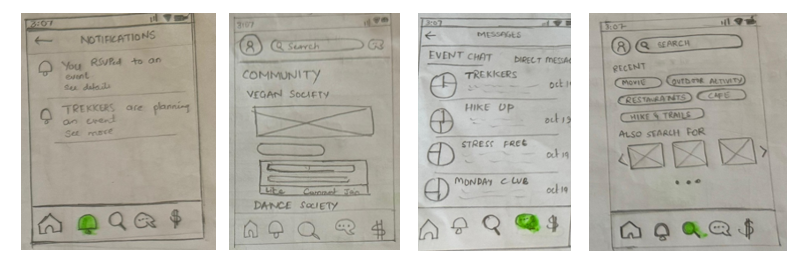 3:07
NOTIFICATIONS
You RSVPed to an
event
See details
TREKKERS are planning
an event
See more
$
3:07
Search
COMMUNITY
VEGAN SOCIETY
Like Comment Join
DANCE SOCIETY
$
3:07
MESSAGES
EVENT CHAT DIRECT MESSAG
TREKKERS
oct 19
HIKE UP
oct 19
STRESS FREE
oct 19
MONDAY CLUB
oct 19
$
3:07
SEARCH
RECENT
MOVIE OUTDOOR ACTIVITY
RESTAURANTS CAFE
HIKE & TRAILS
ALSO SEARCH FOR
$